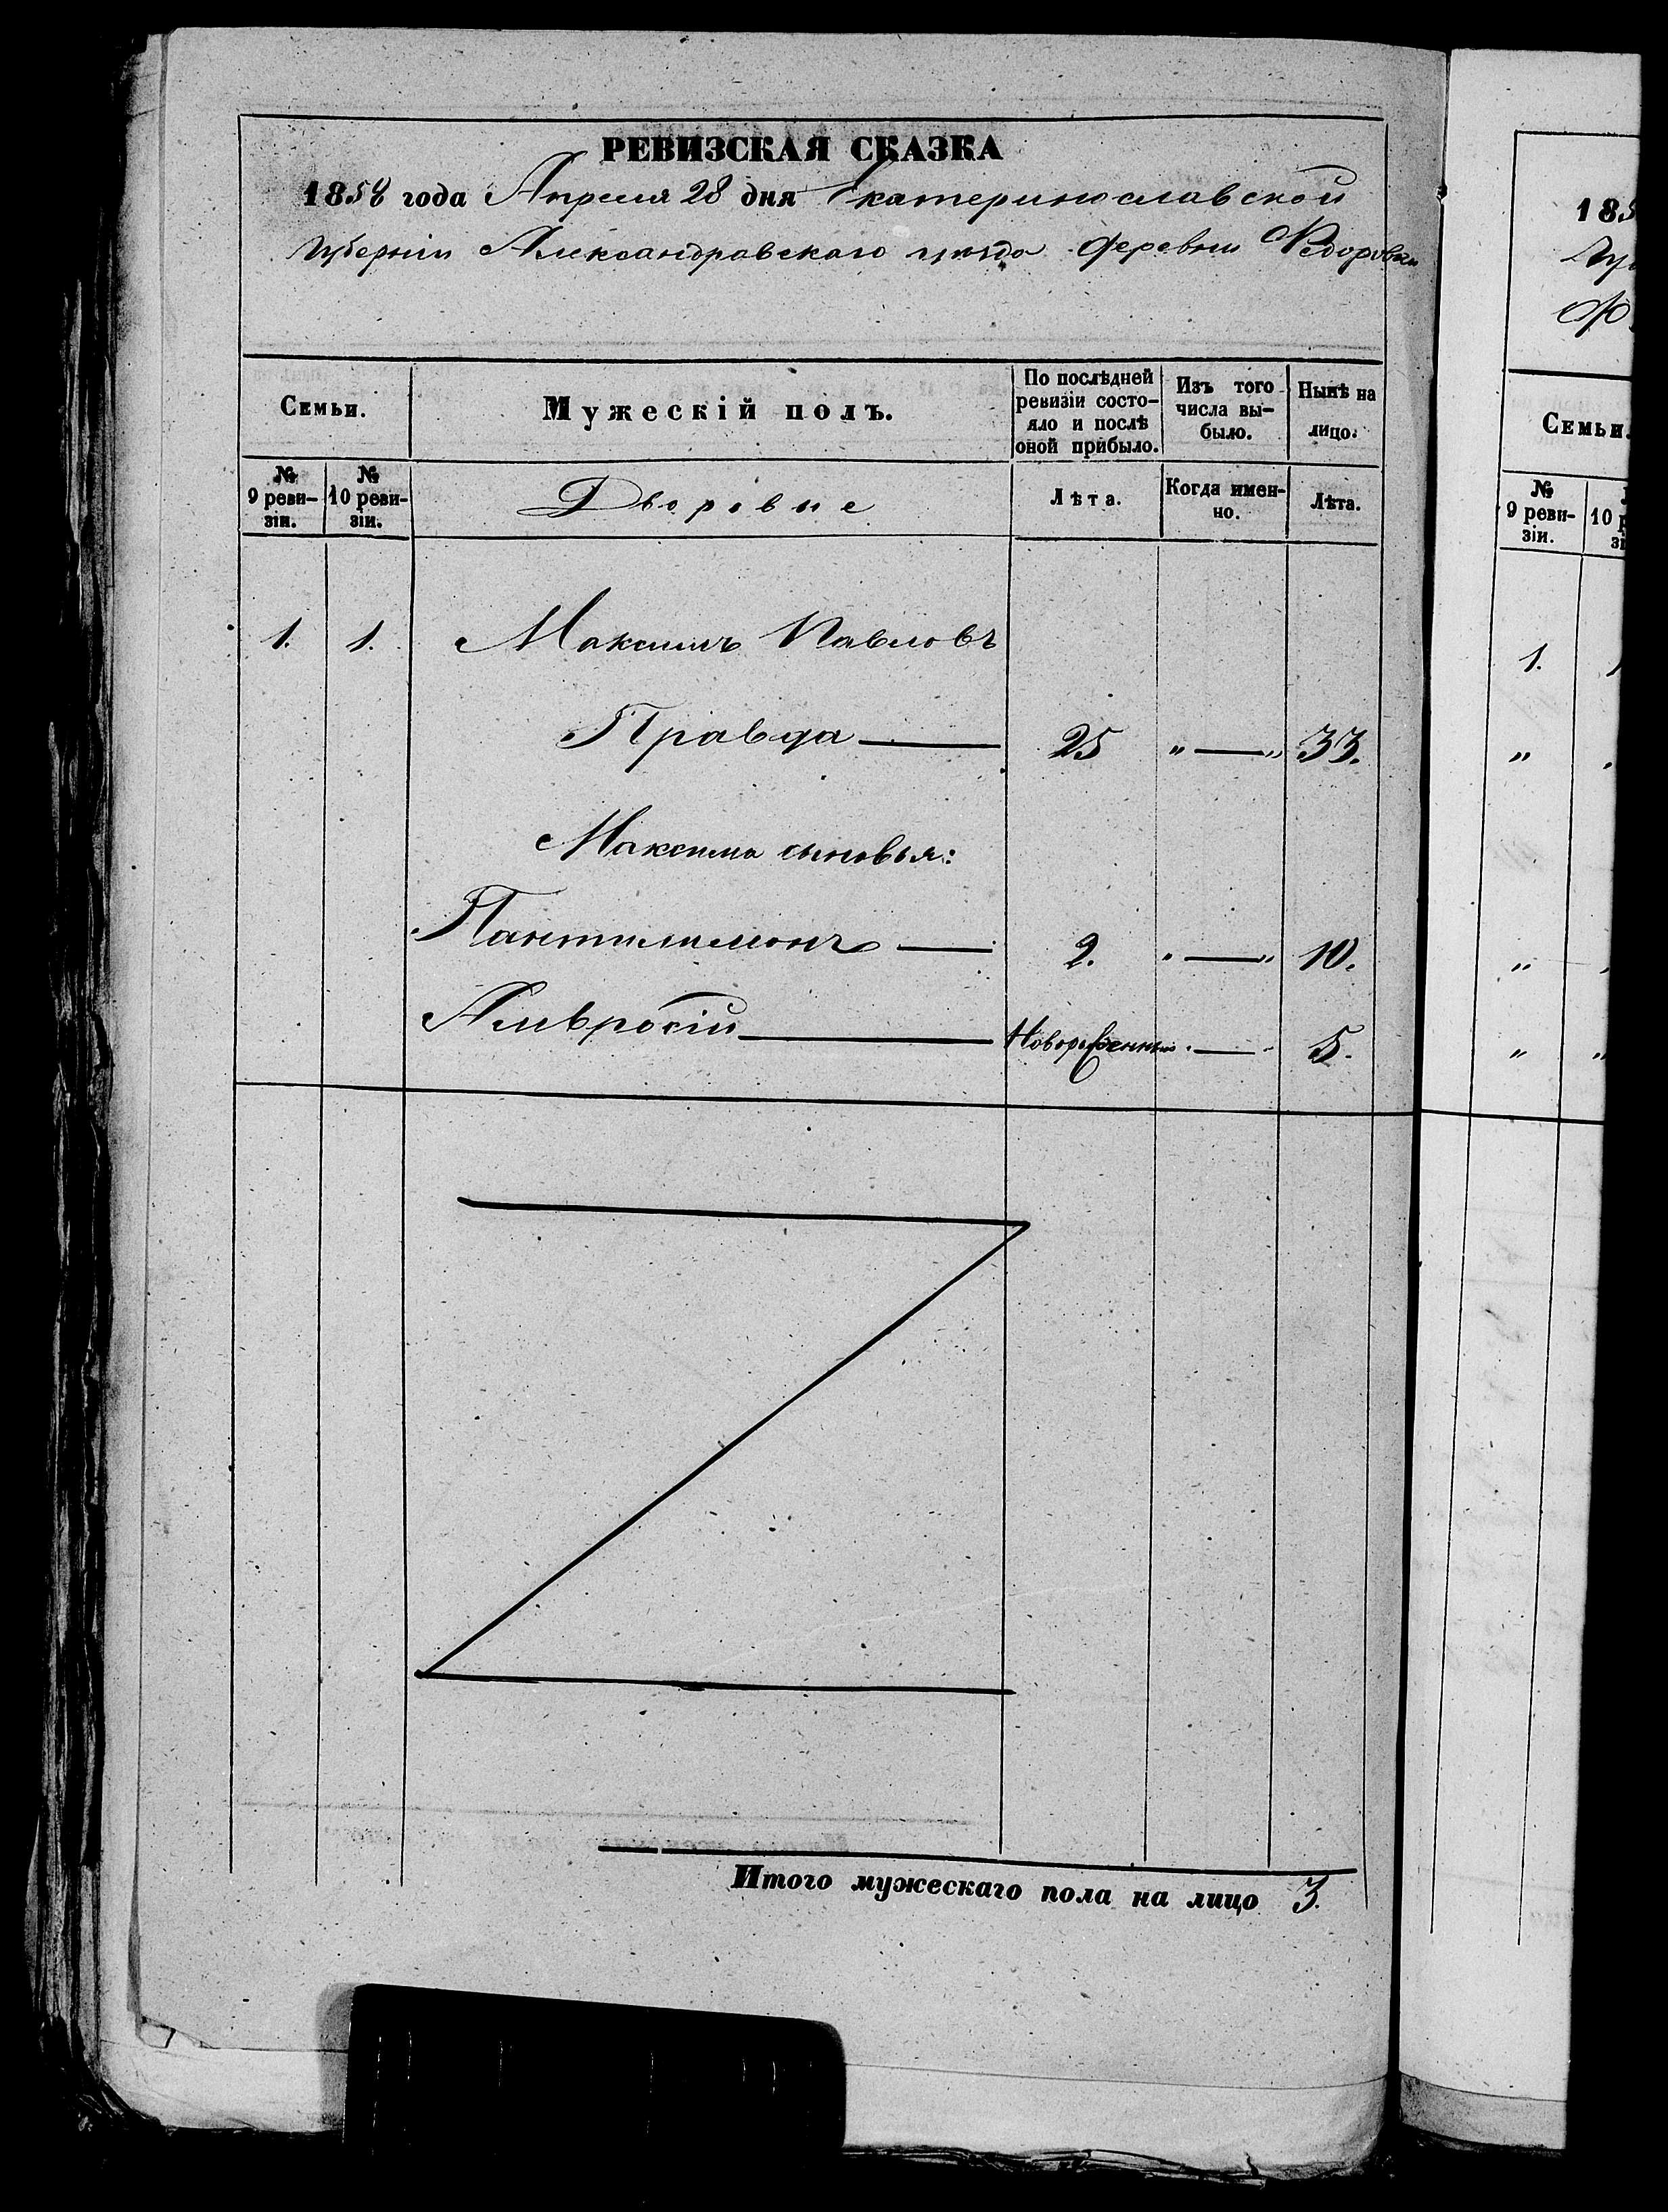 РЕВИЗСКАЯ СКАЗКА
1858 года Апреля 28 дня Екатеринославской
Губерніи Александровскаго уѣзда деревни Федоровки
Семьи.
Мужескій полъ.
По послѣдней ревизіи состо-яло и послѣ оной прибыло.
Изъ того числа вы-было.
Нынѣ на лицо.
№ 9 реви-зіи.
№ 10 реви-зіи.
Дворовые
Лѣта.
Когда имен-но.
Лѣта.
1. 1. Максимъ Павловъ
Правда 25 " — " 33.
Максима сыновья:
Пантилимонъ 2. " — " 10.
Амвросій Новорожденный " — " 5.
Итого мужескаго пола на лицо 3.
185
Гу
Ф
Семьи.
№ 9 реви-зіи.
10
1.
"
"
"